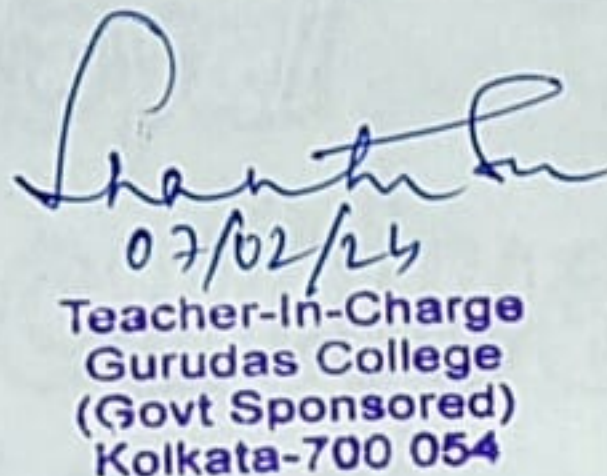 07/02/25
Teacher-In-Charge
Gurudas College
(Govt Sponsored)
Kolkata-700 054